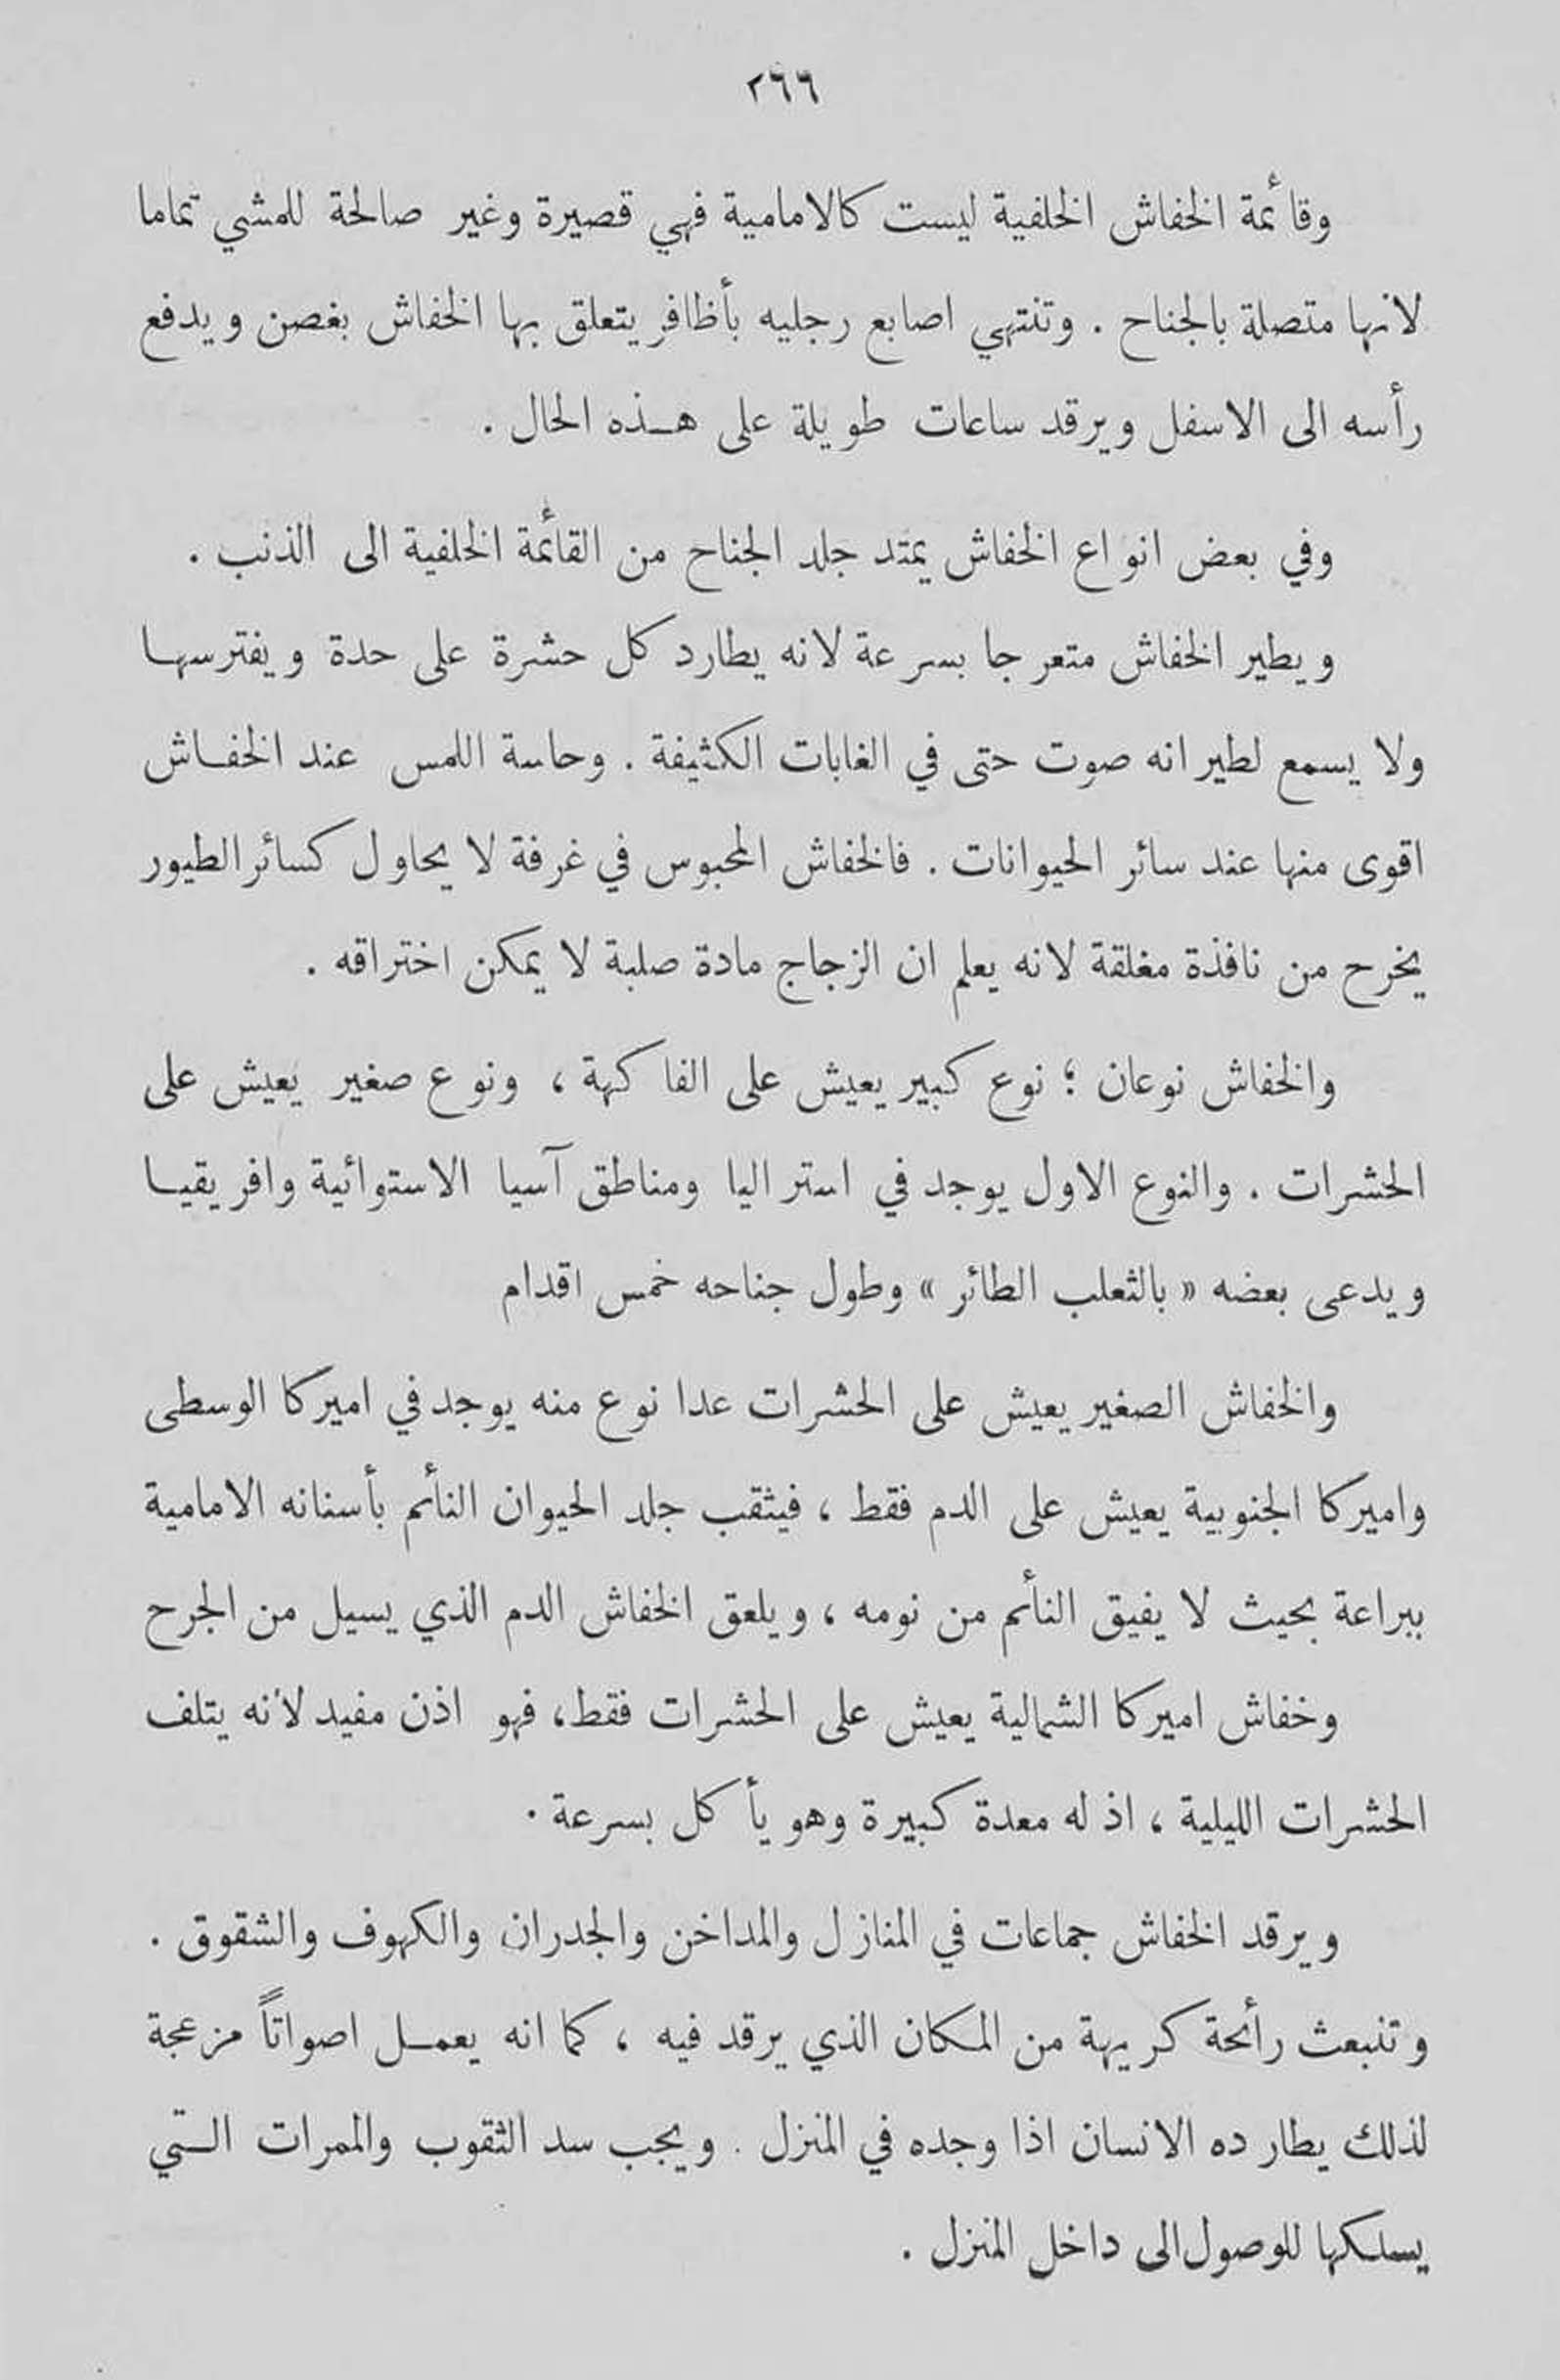 ٢٦٦
وقائمة الخفاش الخلفية ليست كالامامية فهي قصيرة وغير صالحة للمشي تماما
لانها متصلة بالجناح . وتنتهي اصابع رجليه بأظافر يتعلق بها الخفاش بغصن ويدفع
رأسه الى الاسفل ويرقد ساعات طويلة على هـذه الحال .
وفي بعض انواع الخفاش يمتد جلد الجناح من القائمة الخلفية الى الذنب .
ويطير الخفاش متعرجا بسرعة لانه يطارد كل حشرة على حدة ويفترسهـا
ولا يسمع لطيرانه صوت حتى في الغابات الكثيفة . وحاسة اللمس عند الخفـاش
اقوى منها عند سائر الحيوانات . فالخفاش المحبوس في غرفة لا يحاول كسائر الطيور
يخرح من نافذة مغلقة لانه يعلم ان الزجاج مادة صلبة لا يمكن اختراقه .
والخفاش نوعان ؛ نوع كبير يعيش على الفاكهة ، ونوع صغير يعيش على
الحشرات . والنوع الاول يوجد في استراليا ومناطق آسيا الاستوائية وافريقيـا
ويدعى بعضه « بالثعلب الطائر » وطول جناحه خمس اقدام
والخفاش الصغير يعيش على الحشرات عدا نوع منه يوجد في اميركا الوسطى
واميركا الجنوبية يعيش على الدم فقط ، فيثقب جلد الحيوان النائم بأسنانه الامامية
ببراعة بحيث لا يفيق النائم من نومه ، ويلعق الخفاش الدم الذي يسيل من الجرح
وخفاش اميركا الشمالية يعيش على الحشرات فقط، فهو اذن مفيد لأنه يتلف
الحشرات الليلية ، اذ له معدة كبيرة وهو يأكل بسرعة .
ويرقد الخفاش جماعات في المنازل والمداخن والجدران والكهوف والشقوق .
وتنبعث رائحة كريهة من المكان الذي يرقد فيه ، كما انه يعمـل اصواتاً مزعجة
لذلك يطارده الانسان اذا وجده في المنزل . ويجب سد الثقوب والممرات الـتي
يسلكها للوصول الى داخل المنزل .